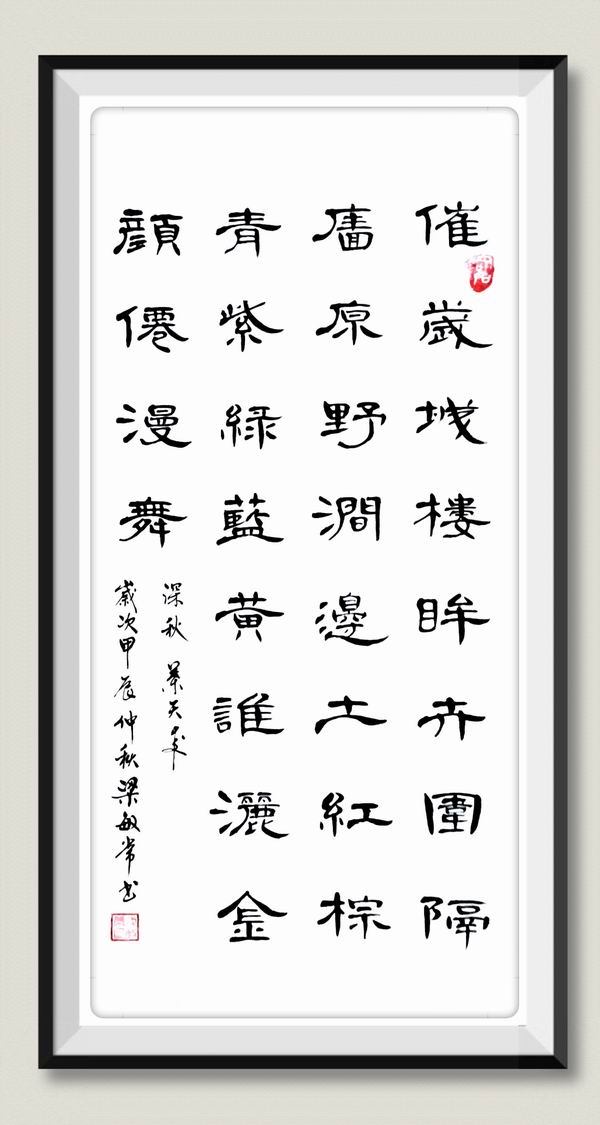 催歲城樓眸卉圍隔
廧原野澗邊土紅棕
青紫綠藍黃誰灑金
顏僊漫舞
深秋 天
歲次甲辰仲秋梁敏常书